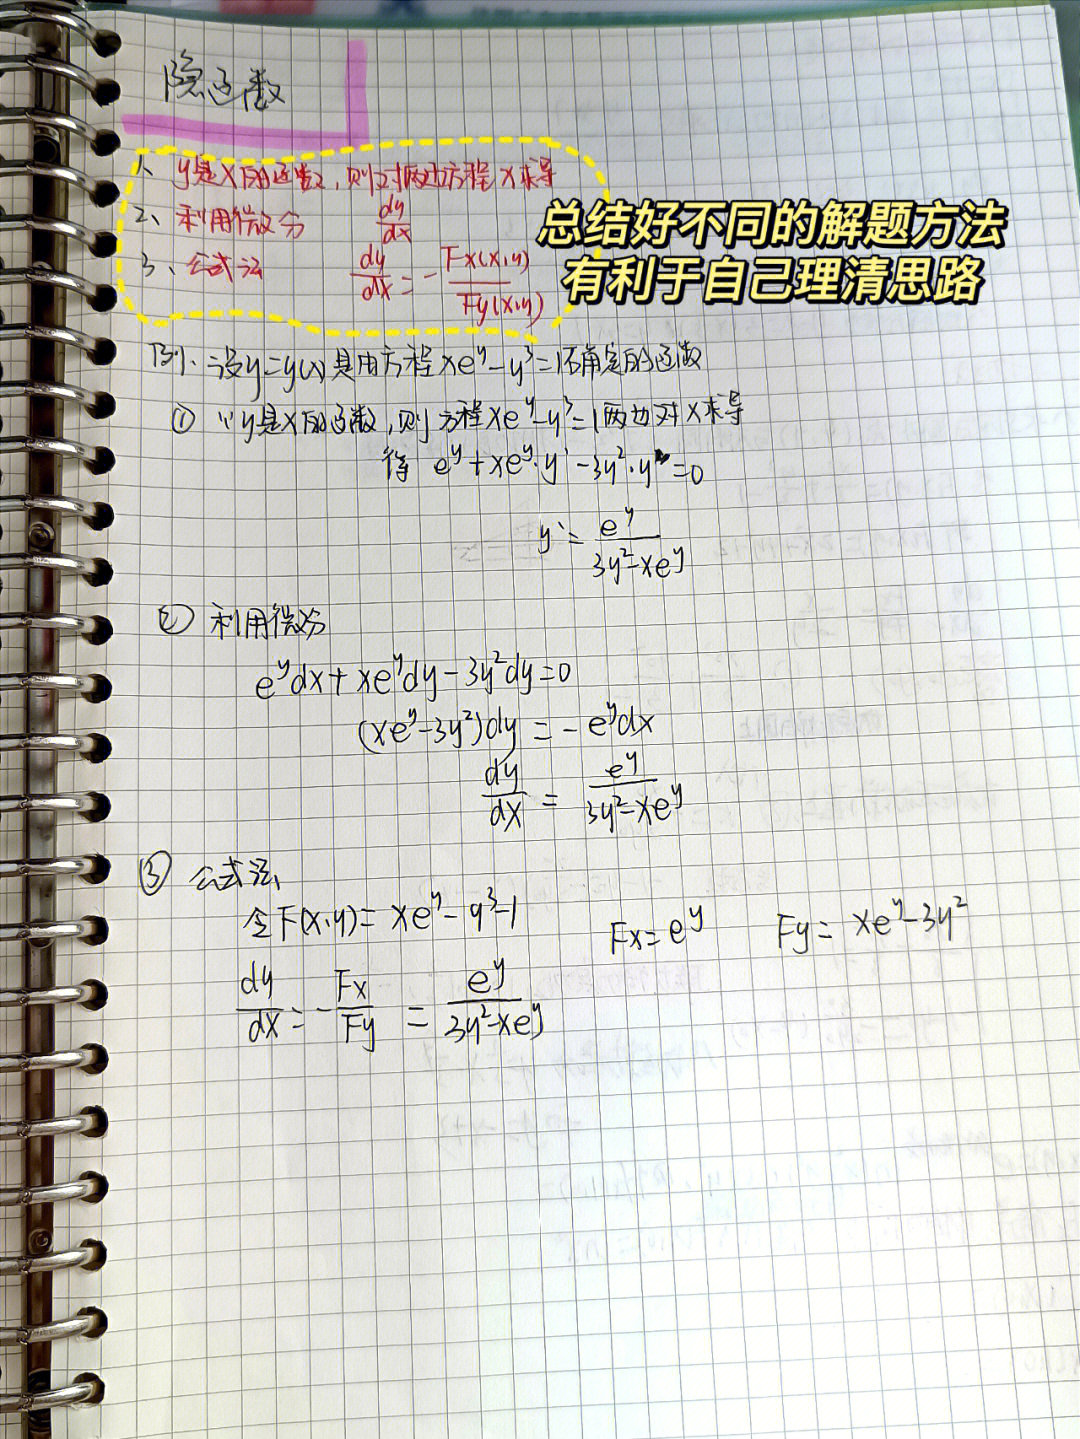 隐函数
1、y是x的函数,则对两边方程x求导
2、利用微分 dy/dx
3、公式法 dy/dx = - Fx(x,y)/Fy(x,y)
总结好不同的解题方法
有利于自己理清思路
例. 设y=y(x)是由方程xe^y-y³=1确定的函数
① ∵y是x的函数,则方程xe^y-y³=1两边对x求导
得 e^y+xe^y·y'-3y²·y'=0
y'= e^y/(3y²-xe^y)
② 利用微分
e^y dx+xe^y dy-3y²dy=0
(xe^y-3y²)dy = -e^y dx
dy/dx = e^y/(3y²-xe^y)
③ 公式法
令F(x,y)= xe^y-y³-1 Fx=e^y Fy= xe^y-3y²
dy/dx = -Fx/Fy = e^y/(3y²-xe^y)